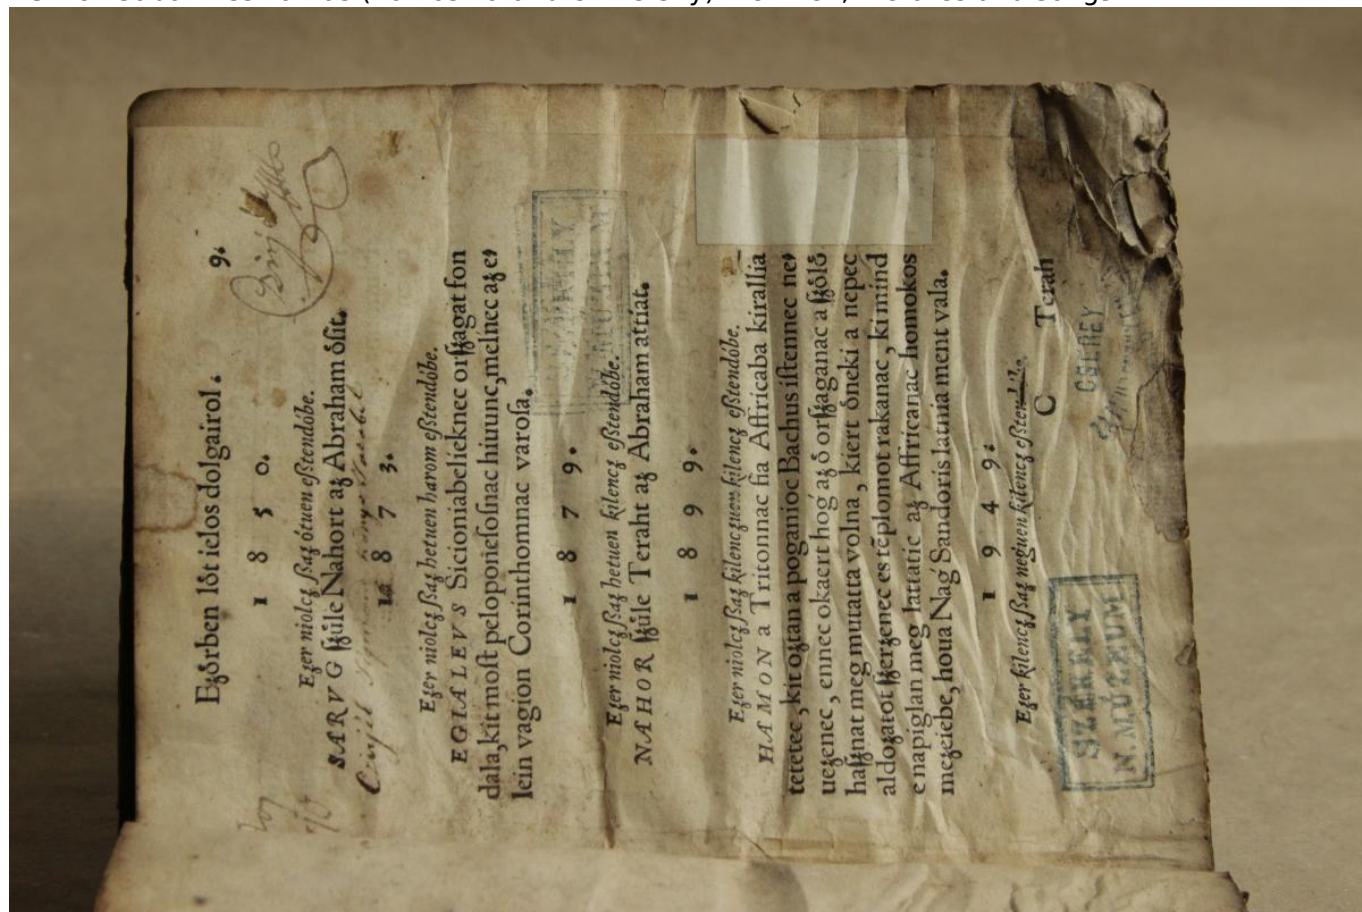 Eʒórben lót ielos dolgairol. 9.
1 8 5 0.
Eʒer niolcʒ ſʒaʒ ótuen eſztendóbe.
SARVG ſʒúle Nahort aʒ Abraham óſit.
8 7 3.
Eʒer niolcʒ ſʒaʒ hetuen harom eſztendóbe.
EGIALEVS Sicioniabelieknec orſʒagat fon
dala, kit moſt peloponieſoſnac hiuunc, melnec aʒ e,
lein vagion Corinthomnac varoſa.
1 8 7 9.
Eʒer niolcʒ ſʒaʒ hetuen kilencʒ eſztendóbe.
NAHOR ſʒúle Teraht aʒ Abraham attiat.
1 8 9 9.
Eʒer niolcʒ ſʒaʒ kilencʒuen kilencʒ eſztendóbe.
HAMON a Tritonnac fia Affricaba kirallia
tetetec, kit oʒtan a poganioc Bachus iſtennec ne,
ueʒenec, ennec okaert hóg aʒ ó orſʒaganac aſʒóló
haſʒnat meg mutatta volna, kiert óneki a nepec
aldoʒatot ſʒerʒenec es tẽplomot rakanac, ki mind
e napiglan meg lattatic aʒ Affricanac homokos
meʒeiebe, houa Nag Sandoris latnia ment vala.
1 9 4 9.
Eʒer kilencʒ ſʒaʒ neguen kilencʒ
C Terah
SZÉKELY
N. MÚZEUM
SZÉKELY
N. MÚZEUM